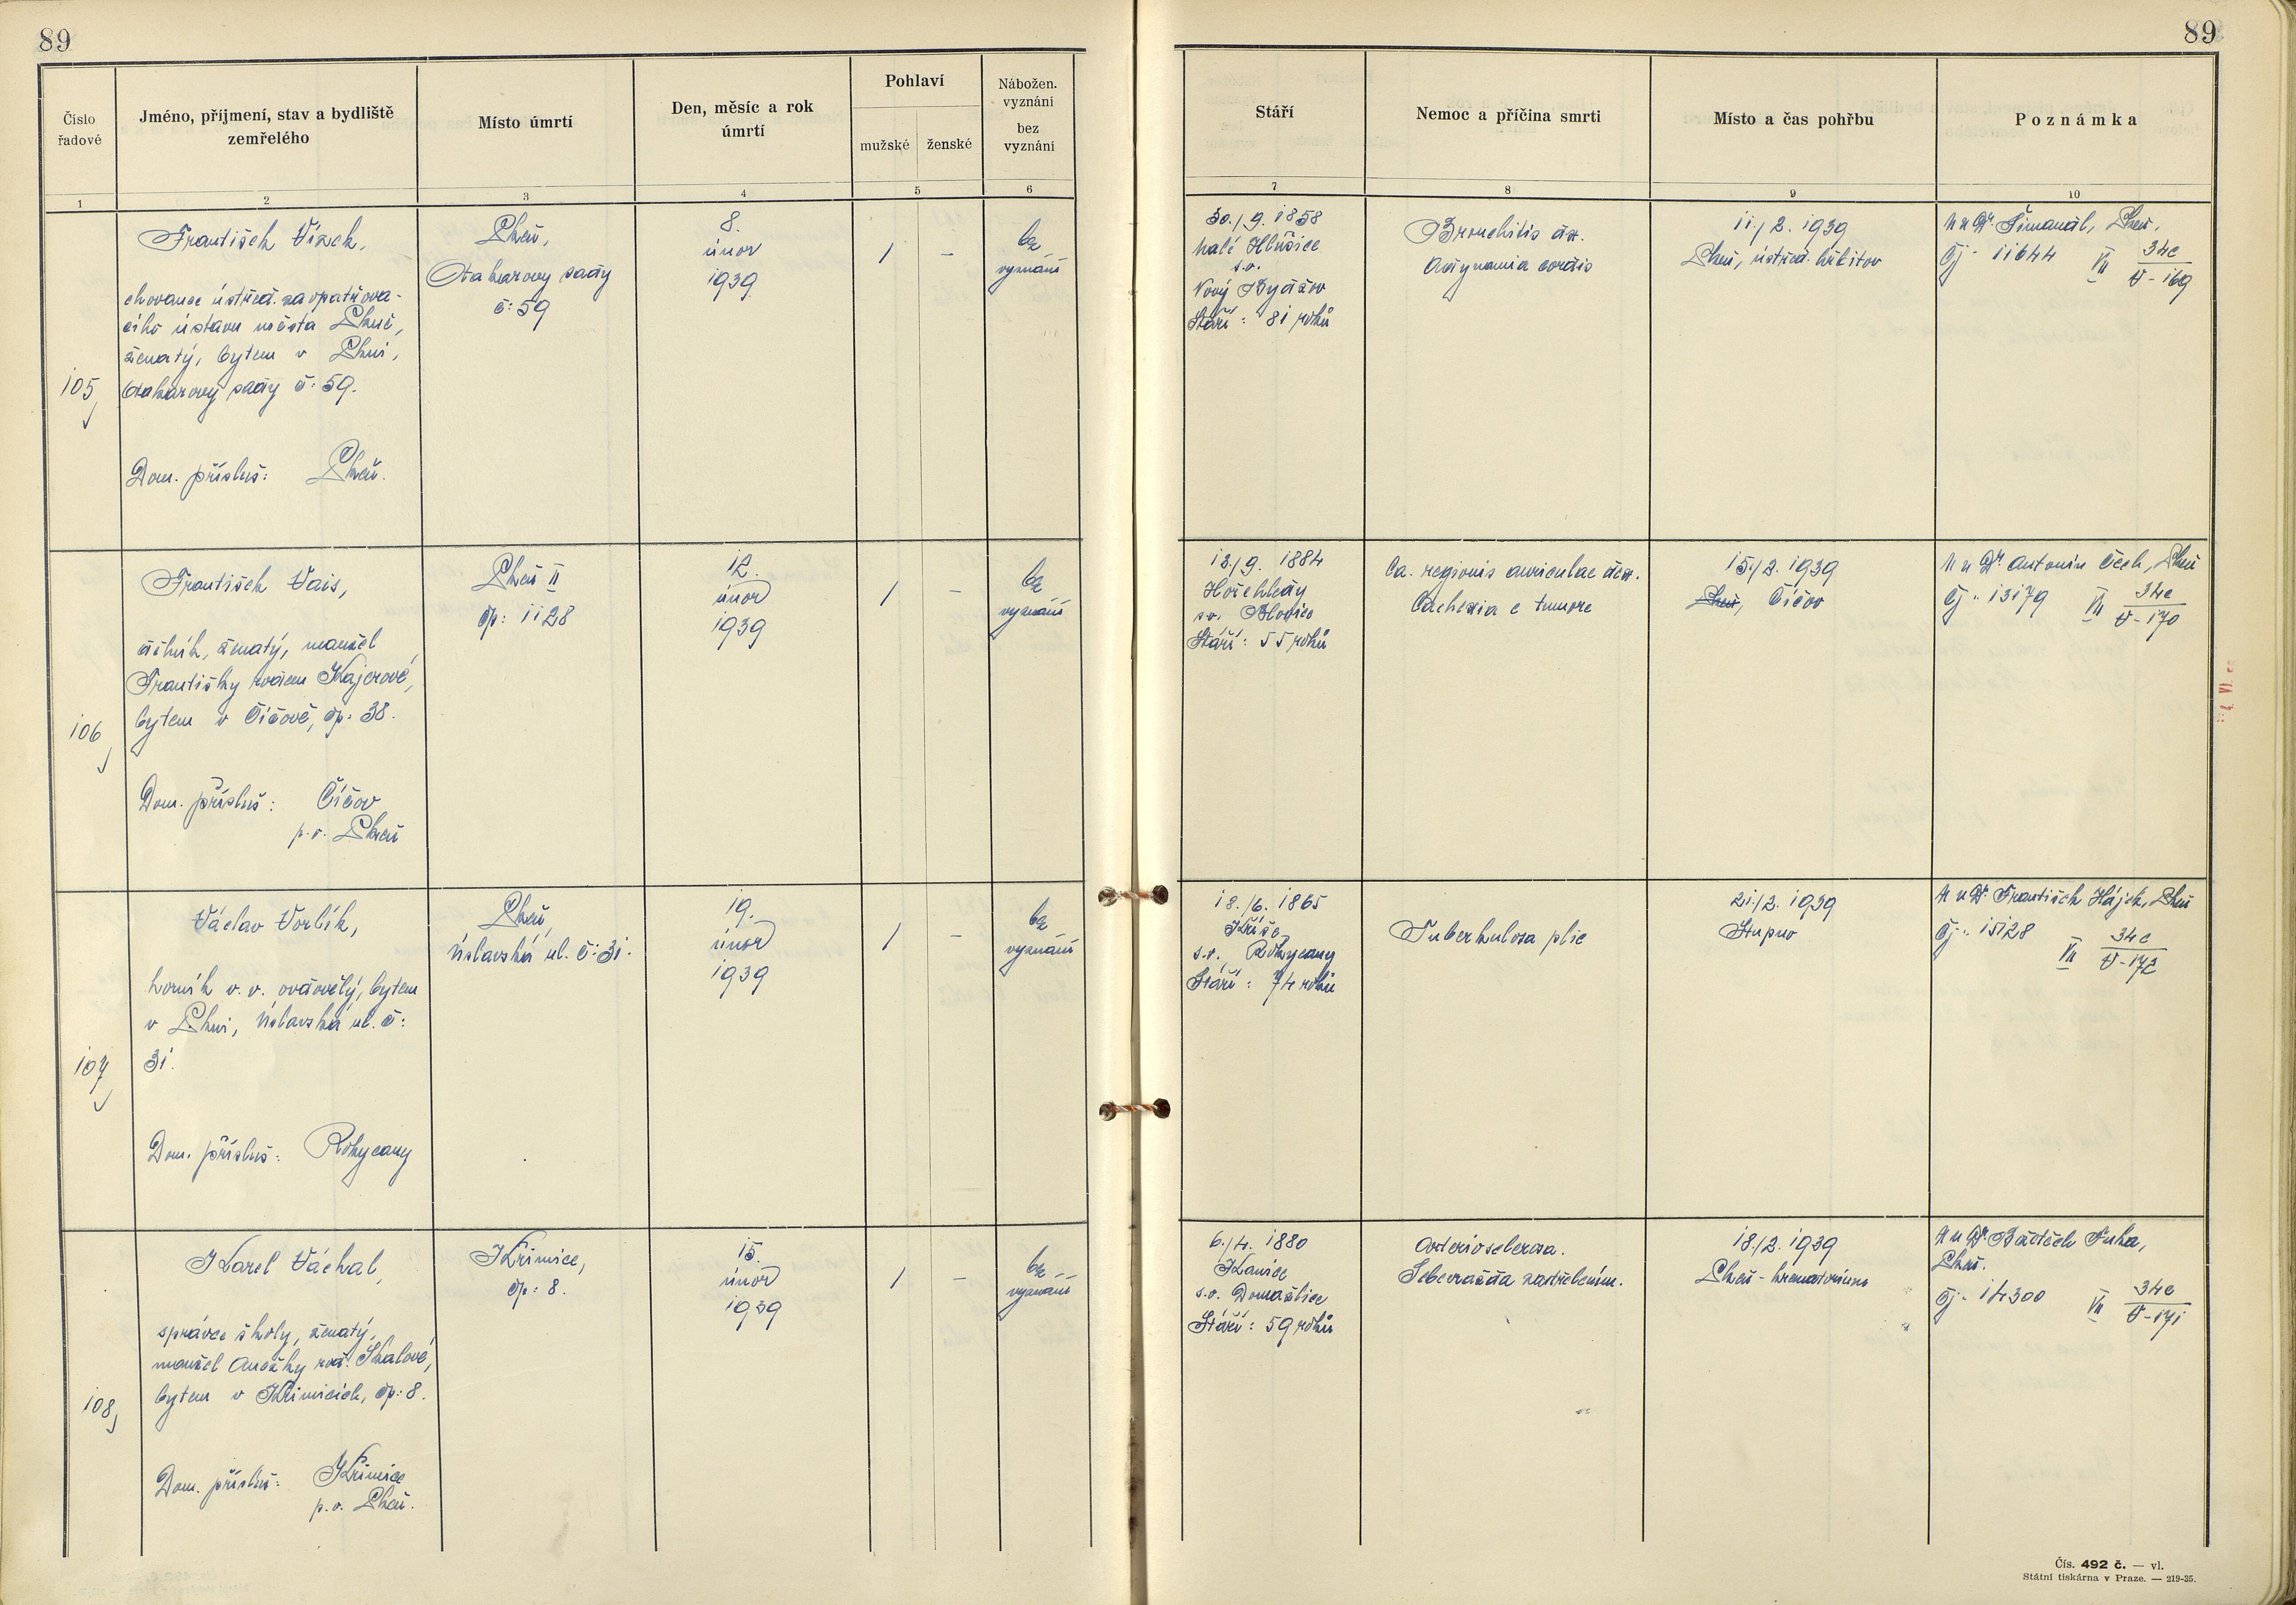 89
89
Číslo řadové
Jméno, příjmení, stav a bydliště zemřelého
Místo úmrtí
Den, měsíc a rok úmrtí
Pohlaví
mužské
ženské
Nábožen. vyznání
bez vyznání
Stáří
Nemoc a příčina smrti
Místo a čas pohřbu
Poznámka
1
2
3
4
5
6
7
8
9
10
105
František Vízek,
chovanec ústřed. zaopatřova-
cího ústavu města Plzně,
ženatý, bytem v Plzni,
sady č: 59.
Dom. přísluš: Plzeň.
Plzeň,
sady
č: 59
8.
únor
1939
1
–
bez
vyznání
30./9. 1858
Malé Hlušice
s.o.
Nový Bydžov
Stáří: 81 roků
Bronchitis
Adynamia cordis
11./2. 1939
Plzeň, ústřed. hřbitov
M u Dr Šimanál, Plzeň,
čj. 11644 VII 34c
V-169
106
František Vais,
číšník, ženatý, manžel
Františky rozen Kajerové,
bytem v Čičově, čp: 38.
Dom. přísluš: Čičov
p.o. Plzeň
Plzeň II
čp: 1128
12.
únor
1939
1
–
bez
vyznání
13./9. 1884
Hořehledy
s.o. Blovice
Stáří: 55 roků
Ca. regionis auriculae dex.
Cachexia e tumore
15./2. 1939
Plzeň, Čičov
M u Dr Antonín Čech, Plzeň
čj. 13179 VII 34c
V-170
107
Václav Vorlík,
horník v. v. ovdovělý, bytem
v Plzni, Úslavská ul. č:
31.
Dom. přísluš: Rokycany
Plzeň,
Úslavská ul. č: 31.
19.
únor
1939
1
–
bez
vyznání
18./6. 1865
Kříše
s.o. Rokycany
Stáří: 74 roků
Tuberkulosa plic
21./2. 1939
Stupno
M u Dr František Hájek, Plzeň
čj. 15128
VII 34c
V-172
108
Karel Váchal,
správce školy, ženatý,
manžel Anežky roz. Skalové,
bytem v Křimicích, čp: 8.
Dom. přísluš: Křimice
p.o. Plzeň.
Křimice,
čp: 8.
15.
únor
1939
1
–
bez
vyznání
6./4. 1880
Kanice
s.o. Domažlice
Stáří: 59 roků
Arteriosclerosa.
Sebevražda zastřelením.
18./2. 1939
Plzeň - krematorium
M u Dr Fuka,
Plzeň.
čj. 14300 VII 34c
V-171
Čís. 492 č. — vl.
Státní tiskárna v Praze. — 219-35.